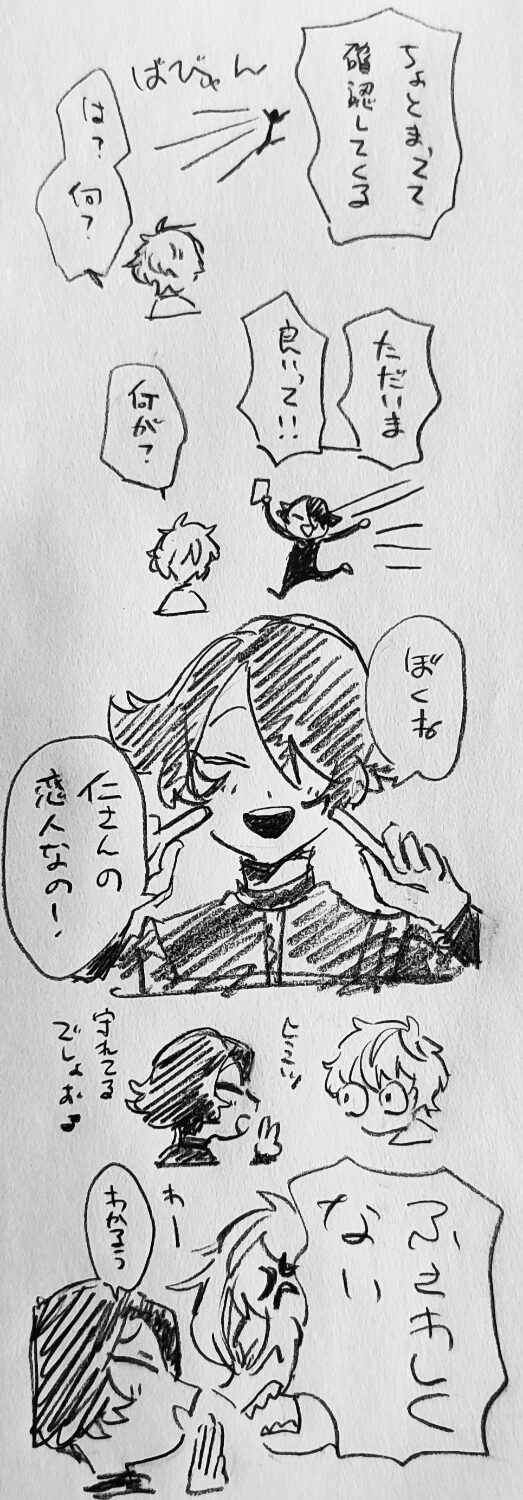 ちょとまってて
確認してくる
ばびゅん
は?何?
ただいま
良いって!!
何が?
ぼくね
仁さんの
恋人なの!
守れてる
でしょおる♪
ふさわしく
ない
わー
わかるぅ